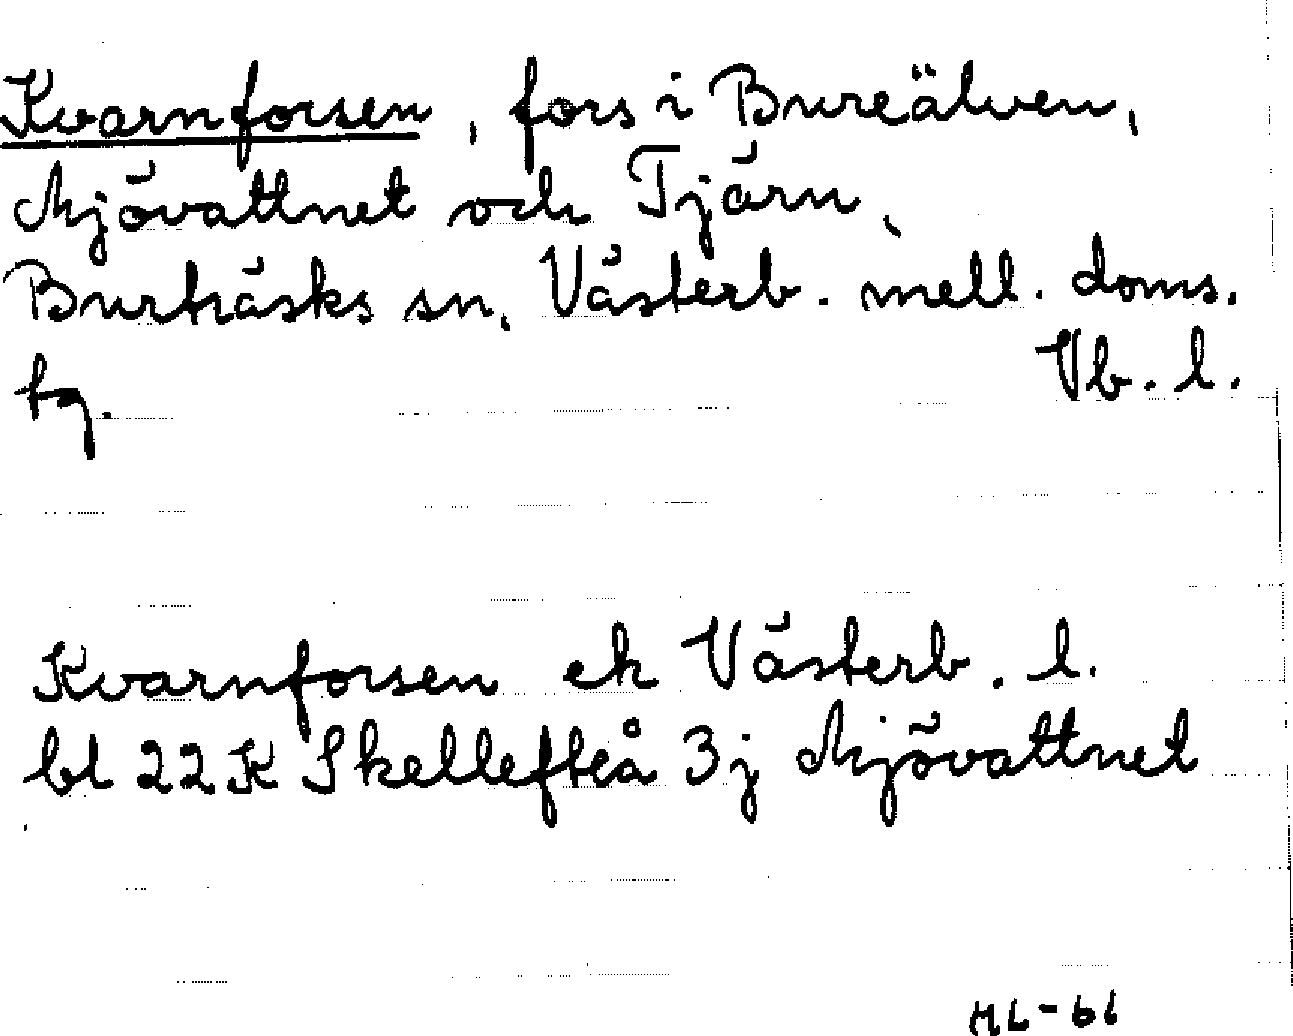 Kvarnforsen, fors i Bureälven,
Mjövattnet och Tjärn,
Burträsks sn, Västerb. mell. doms.
tg. Vb. l.
Kvarnforsen ek Västerb. l.
bl 22K Skellefteå 3j Mjövattnet